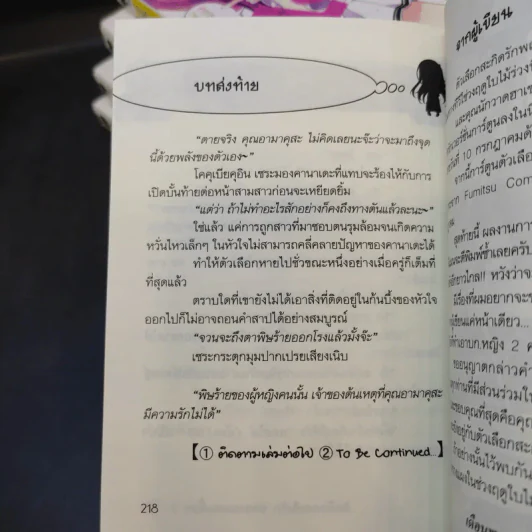 บทส่งท้าย
“ตายจริง คุณอามาคุสะ ไม่คิดเลยนะจ๊ะว่าจะมาถึงจุด
นี้ด้วยพลังของตัวเอง~”
โคคุเบียคุอิน เซระมองคานาเดะที่แทบจะร้องไห้กับการ
เปิดบั้นท้ายต่อหน้าสามสาวก่อนจะเหยียดยิ้ม
“แต่ว่า ถ้าไม่ทำอะไรสักอย่างก็คงถึงทางตันแล้วละนะ~”
ใช่แล้ว แค่การถูกสาวที่มาชอบตนรุมล้อมจนเกิดความ
หวั่นไหวเล็กๆ ในหัวใจไม่สามารถคลี่คลายปัญหาของคานาเดะได้
ทำให้ตัวเลือกหายไปชั่วขณะหนึ่งอย่างเมื่อครู่ก็เต็มที่
ที่สุดแล้ว
ตราบใดที่เขายังไม่ได้เอาสิ่งที่ติดอยู่ในก้นบึ้งของหัวใจ
ออกไปก็ไม่อาจถอนคำสาปได้อย่างสมบูรณ์
“จวนจะถึงตาพิษร้ายออกโรงแล้วมั้งจ๊ะ”
เซระกระตุกมุมปากเปรยเสียงเนิบ
“พิษร้ายของผู้หญิงคนนั้น เจ้าของต้นเหตุที่คุณอามาคุสะ
มีความรักไม่ได้”
【① ติดตามเล่มต่อไป ② To Be Continued...】
218
จากผู้เขียน
ตัวเลือกสะกิดรักพ
และคุณนักวาดฮาเซ
10 กรกฎาคม
จาก Fumitsu Com
สุดท้ายนี้ ผลงานการ
หวังว่าจ
มีเรื่องที่ผมอยากจะข
หญิง 2 ค
ขออนุญาตกล่าวคำ